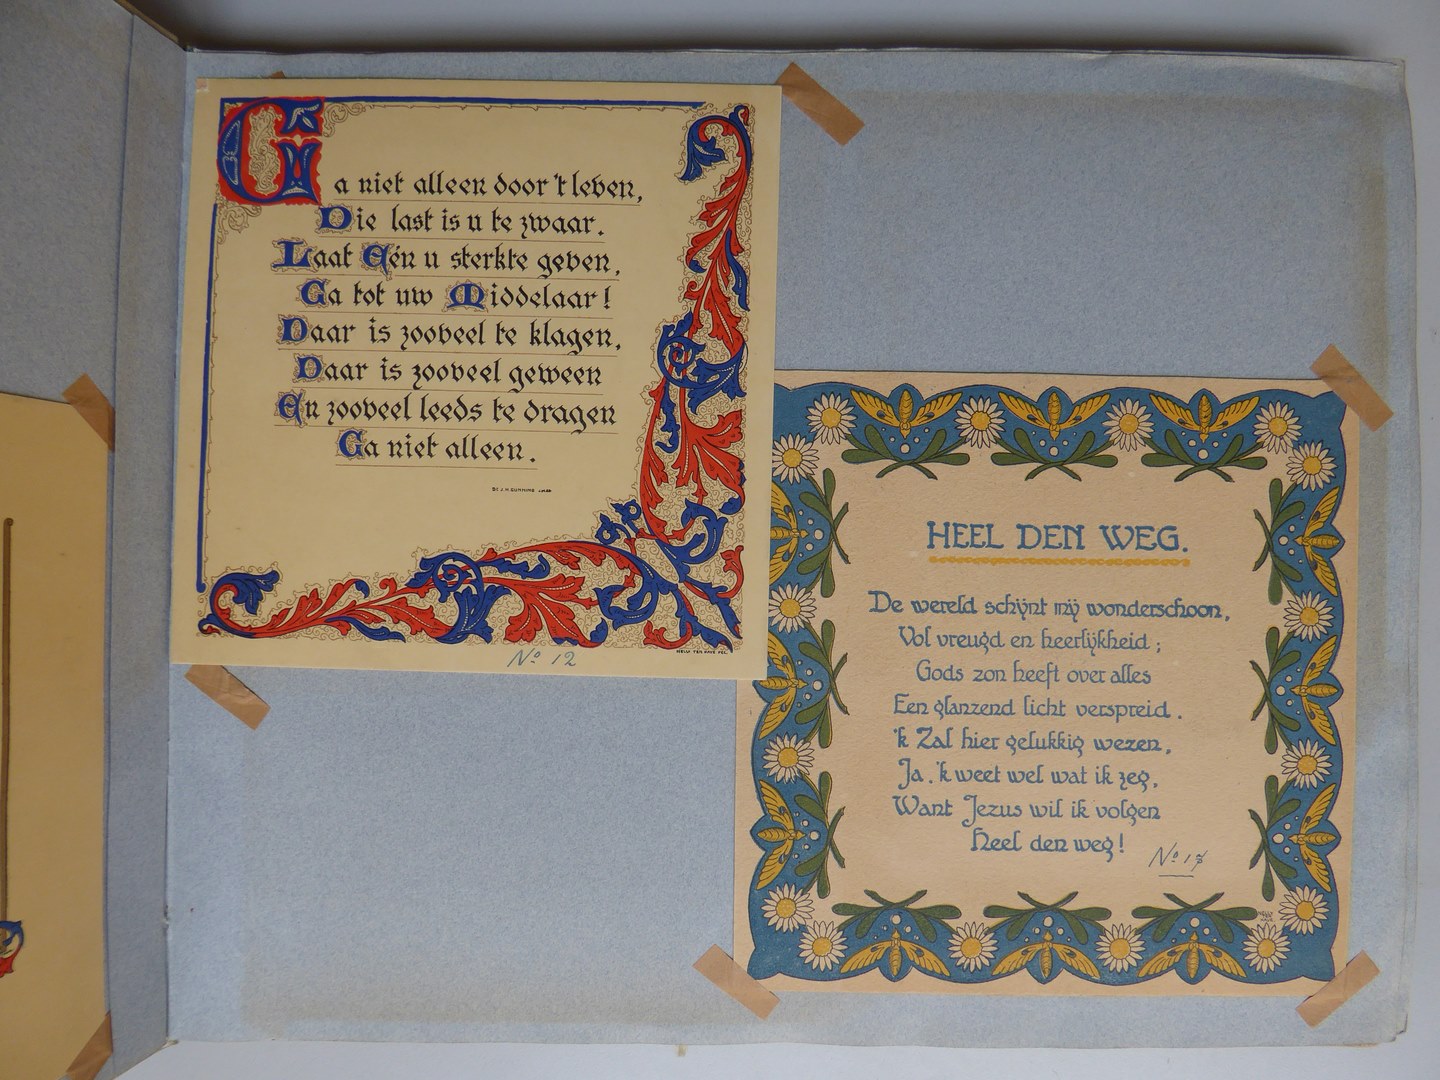 Ga niet alleen door 't leven,
Die last is u te zwaar.
Laat Eén u sterkte geven,
Ga tot uw Middelaar!
Daar is zooveel te klagen,
Daar is zooveel geween
En zooveel leeds te dragen
Ga niet alleen.
Dr. J. H. GUNNING
No 12
HEEL DEN WEG.
De wereld schijnt mij wonderschoon,
Vol vreugd en heerlijkheid;
Gods zon heeft over alles
Een glanzend licht verspreid.
'k Zal hier gelukkig wezen,
Ja, 'k weet wel wat ik zeg,
Want Jezus wil ik volgen
Heel den weg!
No 17